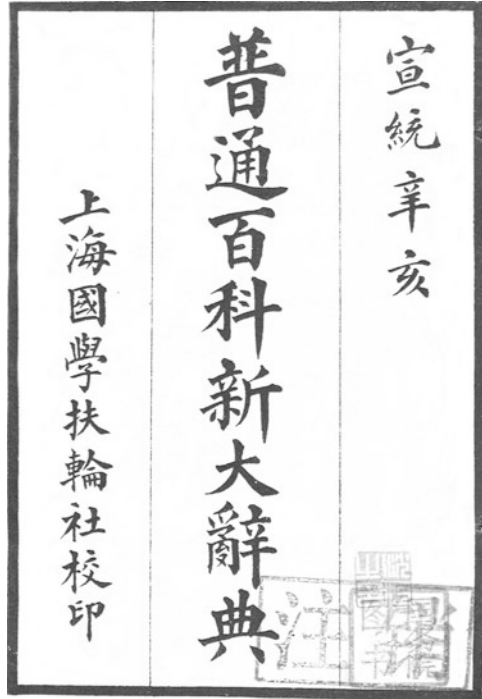 宣統辛亥
普通百科新大辭典
上海國學扶輪社校印
注